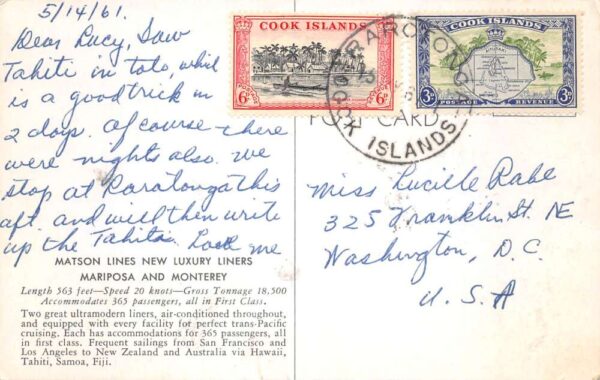 5/14/61.
Dear Lucy, Saw
Tahiti in toto, which
is a good trick in
2 days. Of course there
were nights also. We
stop at Raratonga this
aft. and will then write
up the Tahitis. Love me
MATSON LINES NEW LUXURY LINERS
MARIPOSA AND MONTEREY
Length 563 feet—Speed 20 knots—Gross Tonnage 18,500
Accommodates 365 passengers, all in First Class.
Two great ultramodern liners, air-conditioned throughout,
and equipped with every facility for perfect trans-Pacific
cruising. Each has accommodations for 365 passengers, all
in first class. Frequent sailings from San Francisco and
Los Angeles to New Zealand and Australia via Hawaii,
Tahiti, Samoa, Fiji.
COOK ISLANDS
POSTAGE
6D
POSTAGE
6D
COOK ISLANDS
3D POSTAGE REVENUE 3D
RAROTONGA
COOK ISLANDS
POST CARD
Miss Lucille Rabe
325 Franklin St. NE
Washington, D.C.
U.S.A